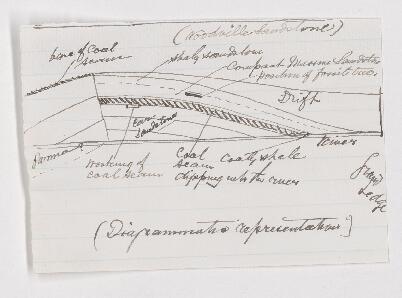 (Woodville Sandstone)
line of Coal
seam
shaly sandstone
Compact Massive Sandstone
position of fossil tree.
Drift
sandstone
River
Parma ?
working of
coal seam
Coal
seam
dipping into the river
Coaly shale
Grand
Ledge
(Diagrammatic representation)